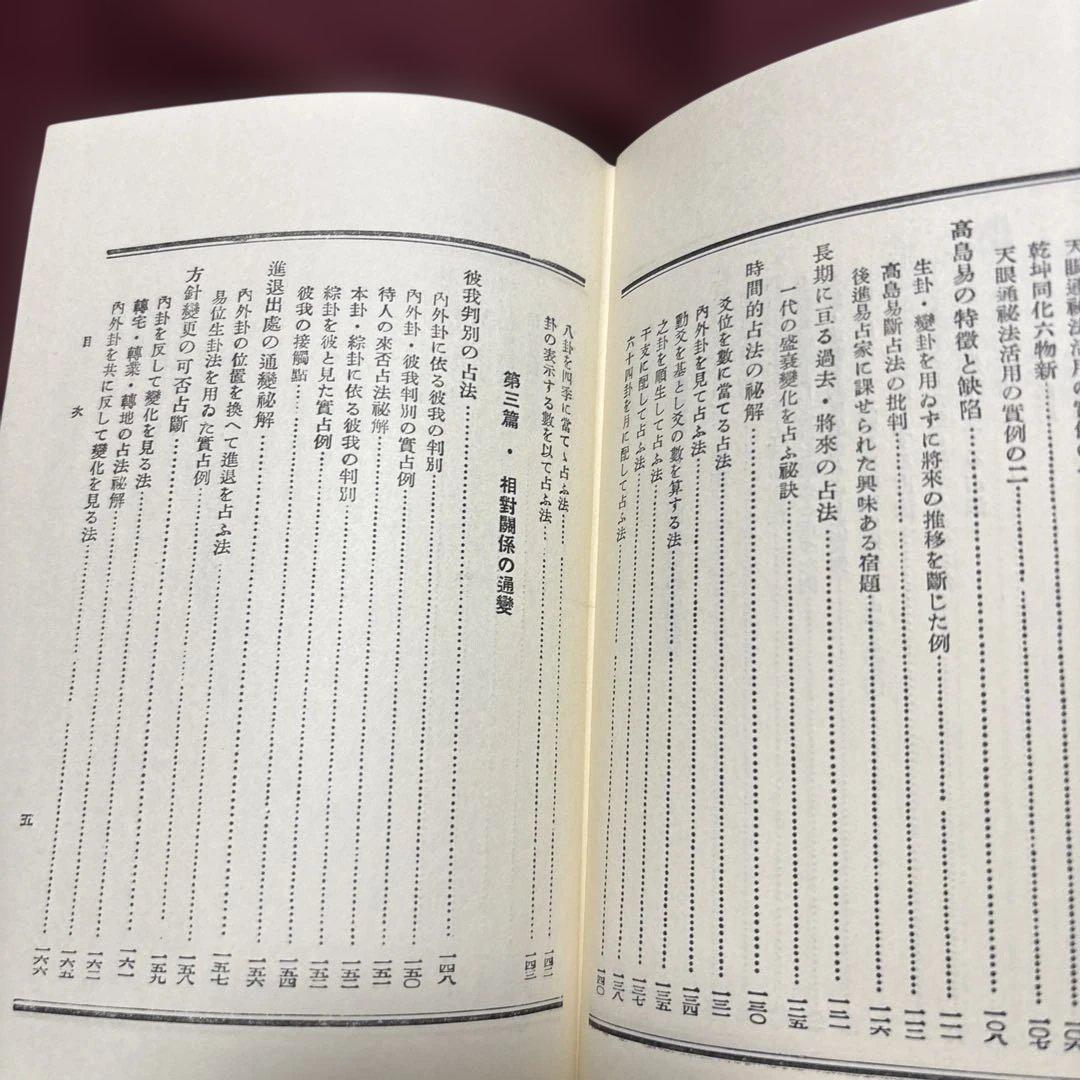 天眼通秘法活用の實例の二 一〇八
乾坤同化六物新 一〇七
高島易の特徵と缺陷 一一一
生卦・變卦を用ゐずに將來の推移を斷じた例 一一一
高島易斷占法の批判 一一三
後進易占家に課せられた興味ある宿題 一一六
長期に亘る過去・將來の占法 一二一
一代の盛衰變化を占ふ祕訣 一二五
時間的占法の祕解 一三〇
爻位を數に當てる占法 一三一
動爻を基とし爻の數を算する法 一三四
內外卦を見て占ふ法
之卦を順生して占ふ法 一三五
干支に配して占ふ法 一三七
六十四卦を月に配して占ふ法
八卦を四季に當てゝ占ふ法 一四二
卦の表示する數を以て占ふ法 一四三
第三篇・相對關係の通變
彼我判別の占法 一四八
內外卦に依る彼我の判別
內外卦・彼我判別の實占例 一五〇
待人の來否占法祕解 一五一
本卦・綜卦に依る彼我の判別 一五二
綜卦を彼と見た實占例 一五三
彼我の接觸點 一五四
進退出處の通變祕解 一五六
內外卦の位置を換へて進退を占ふ法
易位生卦法を用ゐた實占例 一五七
方針變更の可否占斷 一五八
內卦を反して變化を見る法 一五九
轉宅・轉業・轉地の占法祕解 一六一
內外卦を共に反して變化を見る法
目次
五